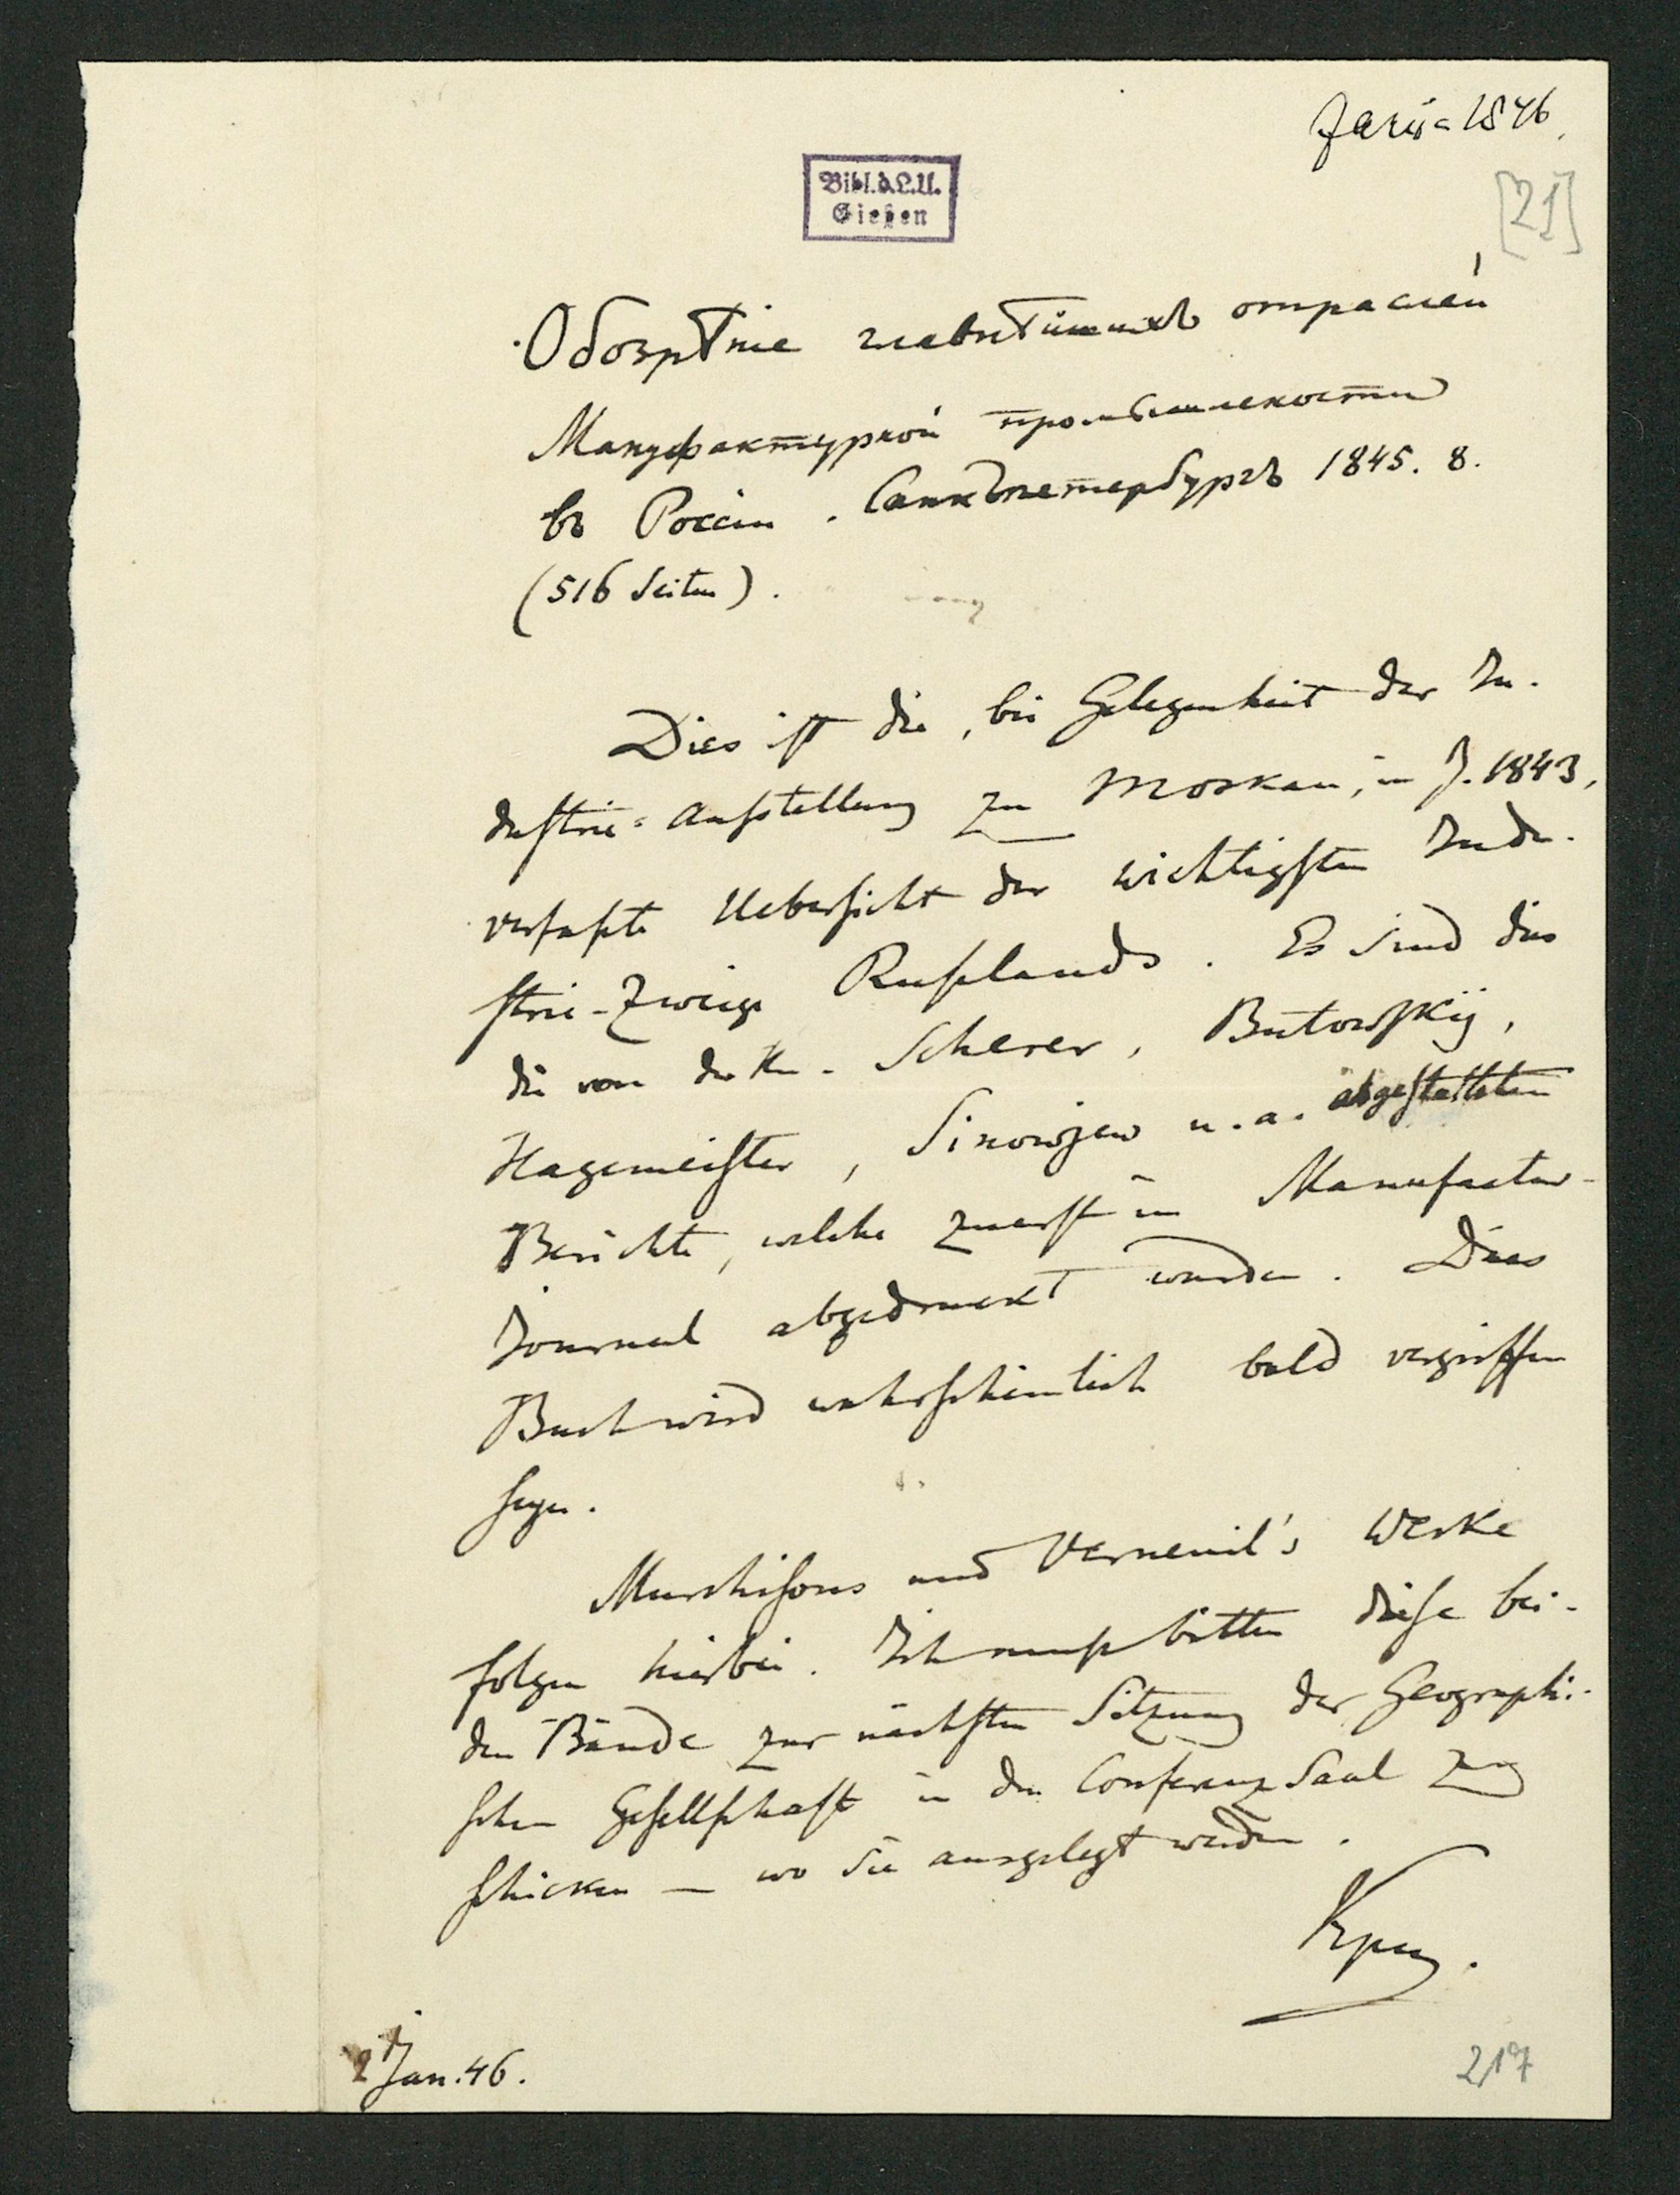 Janr. 1846.
Bibl.d.L.U.
Gießen
[21]
Обозрѣніе главнѣйшихъ отраслей
Мануфактурной промышлености
въ Россіи. Санктпетербургъ 1845. 8.
(516 Seiten).
Dies ist die, bei Gelegenheit der In-
dustrie-Ausstellung zu Moskau, im J. 1843,
verfaßte Uebersicht der wichtigsten Indu-
strie-Zweige Rußlands. Es sind dies
die von den Hn. Scherer, Butowskij,
Hagemeister, Sinowjew u. a. abgestatteten
Berichte, welche zuerst im Manufactur-
Journal abgedruckt wurden. Dies
Buch wird wahrscheinlich bald vergriffen
seyn.
Murchisons und Verneuil's Werke
folgen hierbei. Ich muß bitten diese bei-
den Bände zur nächsten Sitzung der Geographi-
schen Gesellschaft in den Conferenz Saal zu
schicken — wo sie ausgelegt werden.
Kpn.
2 Jan. 46.
217